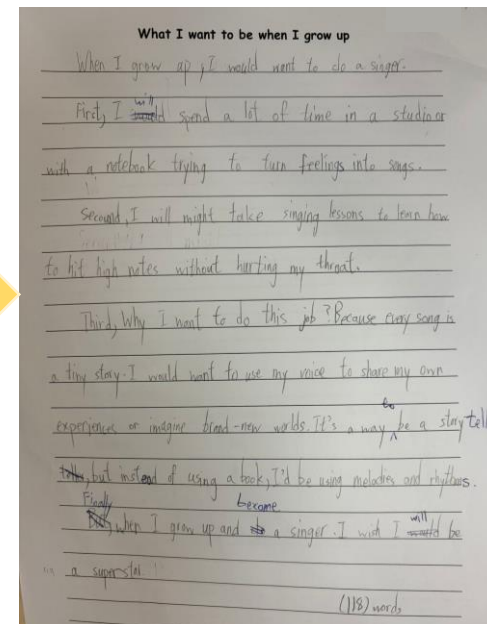 What I want to be when I grow up
When I grow ap, I would want to do a singer.
First, I will spend a lot of time in a studio or
with a notebook trying to turn feelings into songs.
Secound, I will might take singing lessons to learn how
to hit high notes without hurting my throat.
Third, Why I want to do this job? Because every song is
a tiny story. I would want to use my voice to share my own
experiences or imagine brand-new worlds. It's a way to be a story tell
but instead of using a book, I'd be using melodies and rhythms.
Finally, when I grow up and become a singer. I wish I will be
a superstar.
(118) words